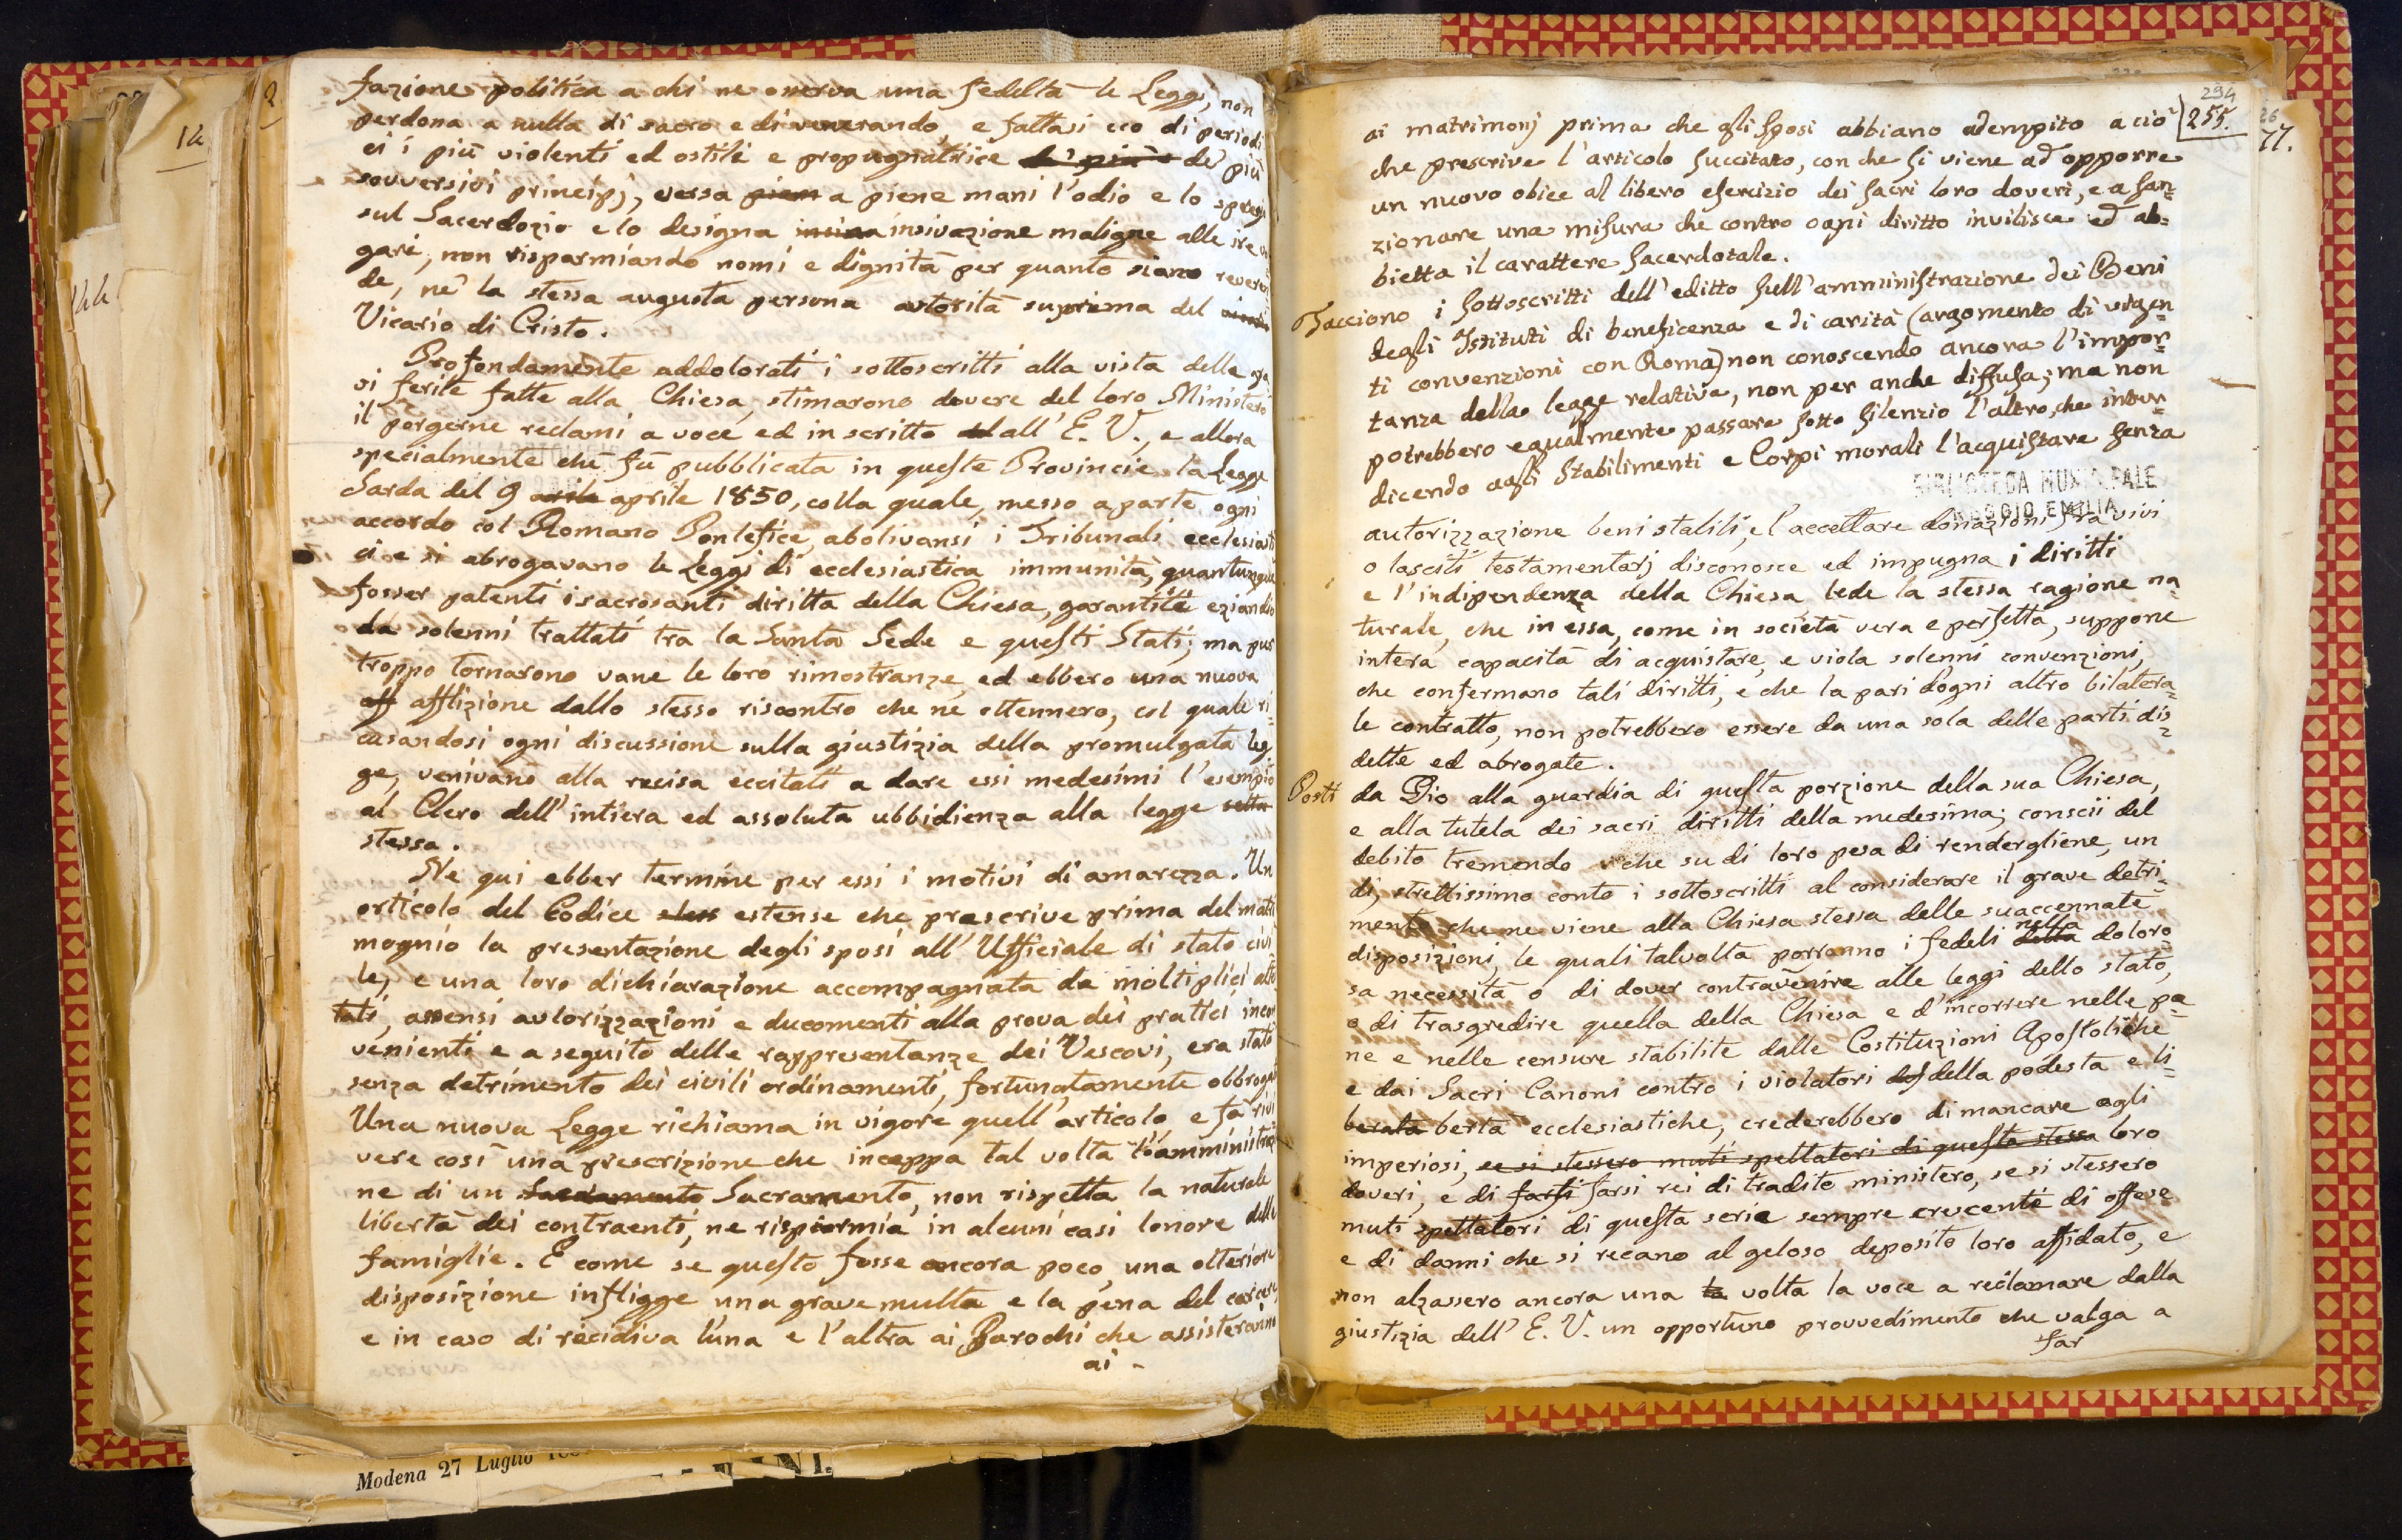 2
fazione politica a chi ne onerva una fedeltà le Leggi, non
perdona a nulla di sacro e di venerando, e fattasi eco di periodi
ci i più violenti ed ostili e propugnatrice de' più de' più
sovversivi principj, versa pien a piene mani l'odio e lo spregi
sul Sacerdozio e lo designa insinua insinvazione maligne alle ire
gari, non risparmiando nomi e dignità per quanto siano reveren
de, nè la stessa augusta persona autorità suprema del
Vicario di Cristo.
Profondamente addolorati i sottoscritti alla vista delle gra
vi ferite fatte alla Chiesa, stimarono dovere del loro Ministero
il porgerne reclami a voce ed in scritto all' E. V., e allora
specialmente che fù pubblicata in queste Provincie la Legge
Sarda del 9 aprile 1850, colla quale, messo a parte ogni
accordo col Romano Pontefice, abolivansi i Tribunali ecclesiasti
ci e si abrogavano le Leggi di ecclesiastica immunità, quantunque
fosser patenti i sacrosanti diritta della Chiesa, garantiti eziandio
da solenni trattati tra la Santa Sede e questi Stati; ma pur
troppo tornarono vane le loro rimostranze, ed ebbero una nuova
aff afflizione dallo stesso riscontro che ne ottennero, col quale ri-
cusandosi ogni discussione sulla giustizia della promulgata leg
ge, venivano alla recisa eccitati a dare essi medesimi l'esempio
al Clero dell' intiera ed assoluta ubbidienza alla legge
stessa.
Ne qui ebber termine per essi i motivi di amarezza. Un
articolo del Codice estense che prescrive prima del matri
mognio la presentazione degli sposi all' Ufficiale di stato civi
le, e una loro dichiarazione accompagnata da moltiplici atte
tati, assensi autorizzazioni e ducomenti alla prova dei prattci incon
venienti e a seguito delle rappresentanze dei Vescovi, era stato
senza detrimento dei civili ordinamenti, fortunatamente obbrogat
Una nuova Legge richiama in vigore quell' articolo e fà rivi
vere così una prescrizione che inceppa tal volta l'amministrazi
ne di un Sacramento Sacramento, non rispetta la naturale
libertà dei contraenti, ne risparmia in alcuni casi lonore delle
famiglie. E come se questo fosse ancora poco, una olteriore
disposizione infligge una grave multa e la pena del carcere,
e in caso di recidiva l'una e l'altra ai Parochi che assisteranno
ai -
294
255.
26
77.
ai matrimonj prima che gli sposi abbiano adempito a ciò
che prescrive l'articolo succitato, con che si viene ad opporre
un nuovo obice al libero esercizio dei sacri loro doveri, e a san=
zionare una misura che contro ogni diritto invilisca ed ab=
bietta il carattere sacerdotale.
Tacciono i sottoscritti dell' editto sull' amministrazione dei Beni
degli Istituti di beneficenza e di carità (argomento di vigen=
ti convenzioni con Roma) non conoscendo ancora l'impor=
tanza della legge relativa, non per anche diffusa; ma non
potrebbero egualmente passare sotto silenzio l'altro, che inter=
dicendo agli Stabilimenti e Corpi morali l'acquistare senza
BIBLIOTECA MUNICIPALE
REGGIO EMILIA
autorizzazione beni stabili, e l'accettare donazioni fra vivi
o lasciti testamentarj disconosce ed impugna i diritti
e l'indipendenza della Chiesa lede la stessa ragione na=
turale, che in essa, come in società vera e perfetta, suppone
intera capacità di acquistare, e viola solenni convenzioni,
che confermano tali diritti, e che la pari d'ogni altro bilatera=
le contratto, non potrebbero essere da una sola delle parti dis=
dette ed abrogate.
Posti da Dio alla guardia di questa porzione della sua Chiesa,
e alla tutela dei sacri diritti della medesima; conscii del
debito tremendo che su di loro pesa di rendergliene, un
dì, strettissimo conto i sottoscritti al considerare il grave detri=
mento che ne viene alla Chiesa stessa delle suaccennate
disposizioni, le quali talvolta porranno i fedeli della nella doloro=
sa necessità o di dover contravenire alle leggi dello stato,
o di trasgredire quella della Chiesa e d'incorrere nelle pe=
ne e nelle censure stabilite dalle Costituzioni Apostoliche
e dai Sacri Canoni contro i violatori della podestà e li=
berata bertà ecclesiastiche, crederebbero di mancare agli
imperiosi, se si stessero muti spettatori di questa stessa loro
doveri, e di farsi farsi rei di tradito ministero, se si stessero
muti spettatori di questa serie sempre crescente di offese
e di danni che si recano al geloso deposito loro affidato, e
non alzassero ancora una volta la voce a reclamare dalla
giustizia dell' E. V. un opportuno provvedimento che valga a
far
Modena 27 Luglio